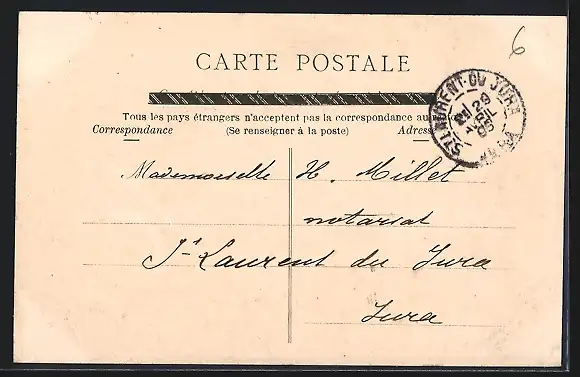 6
CARTE POSTALE
Tous les pays étrangers n'acceptent pas la correspondance au
Correspondance
(Se renseigner à la poste)
Adress
ST LAURENT-DU JURA
29
AVRIL
05
Mademoiselle H. Millet
notariat
St Laurent du Jura
Jura